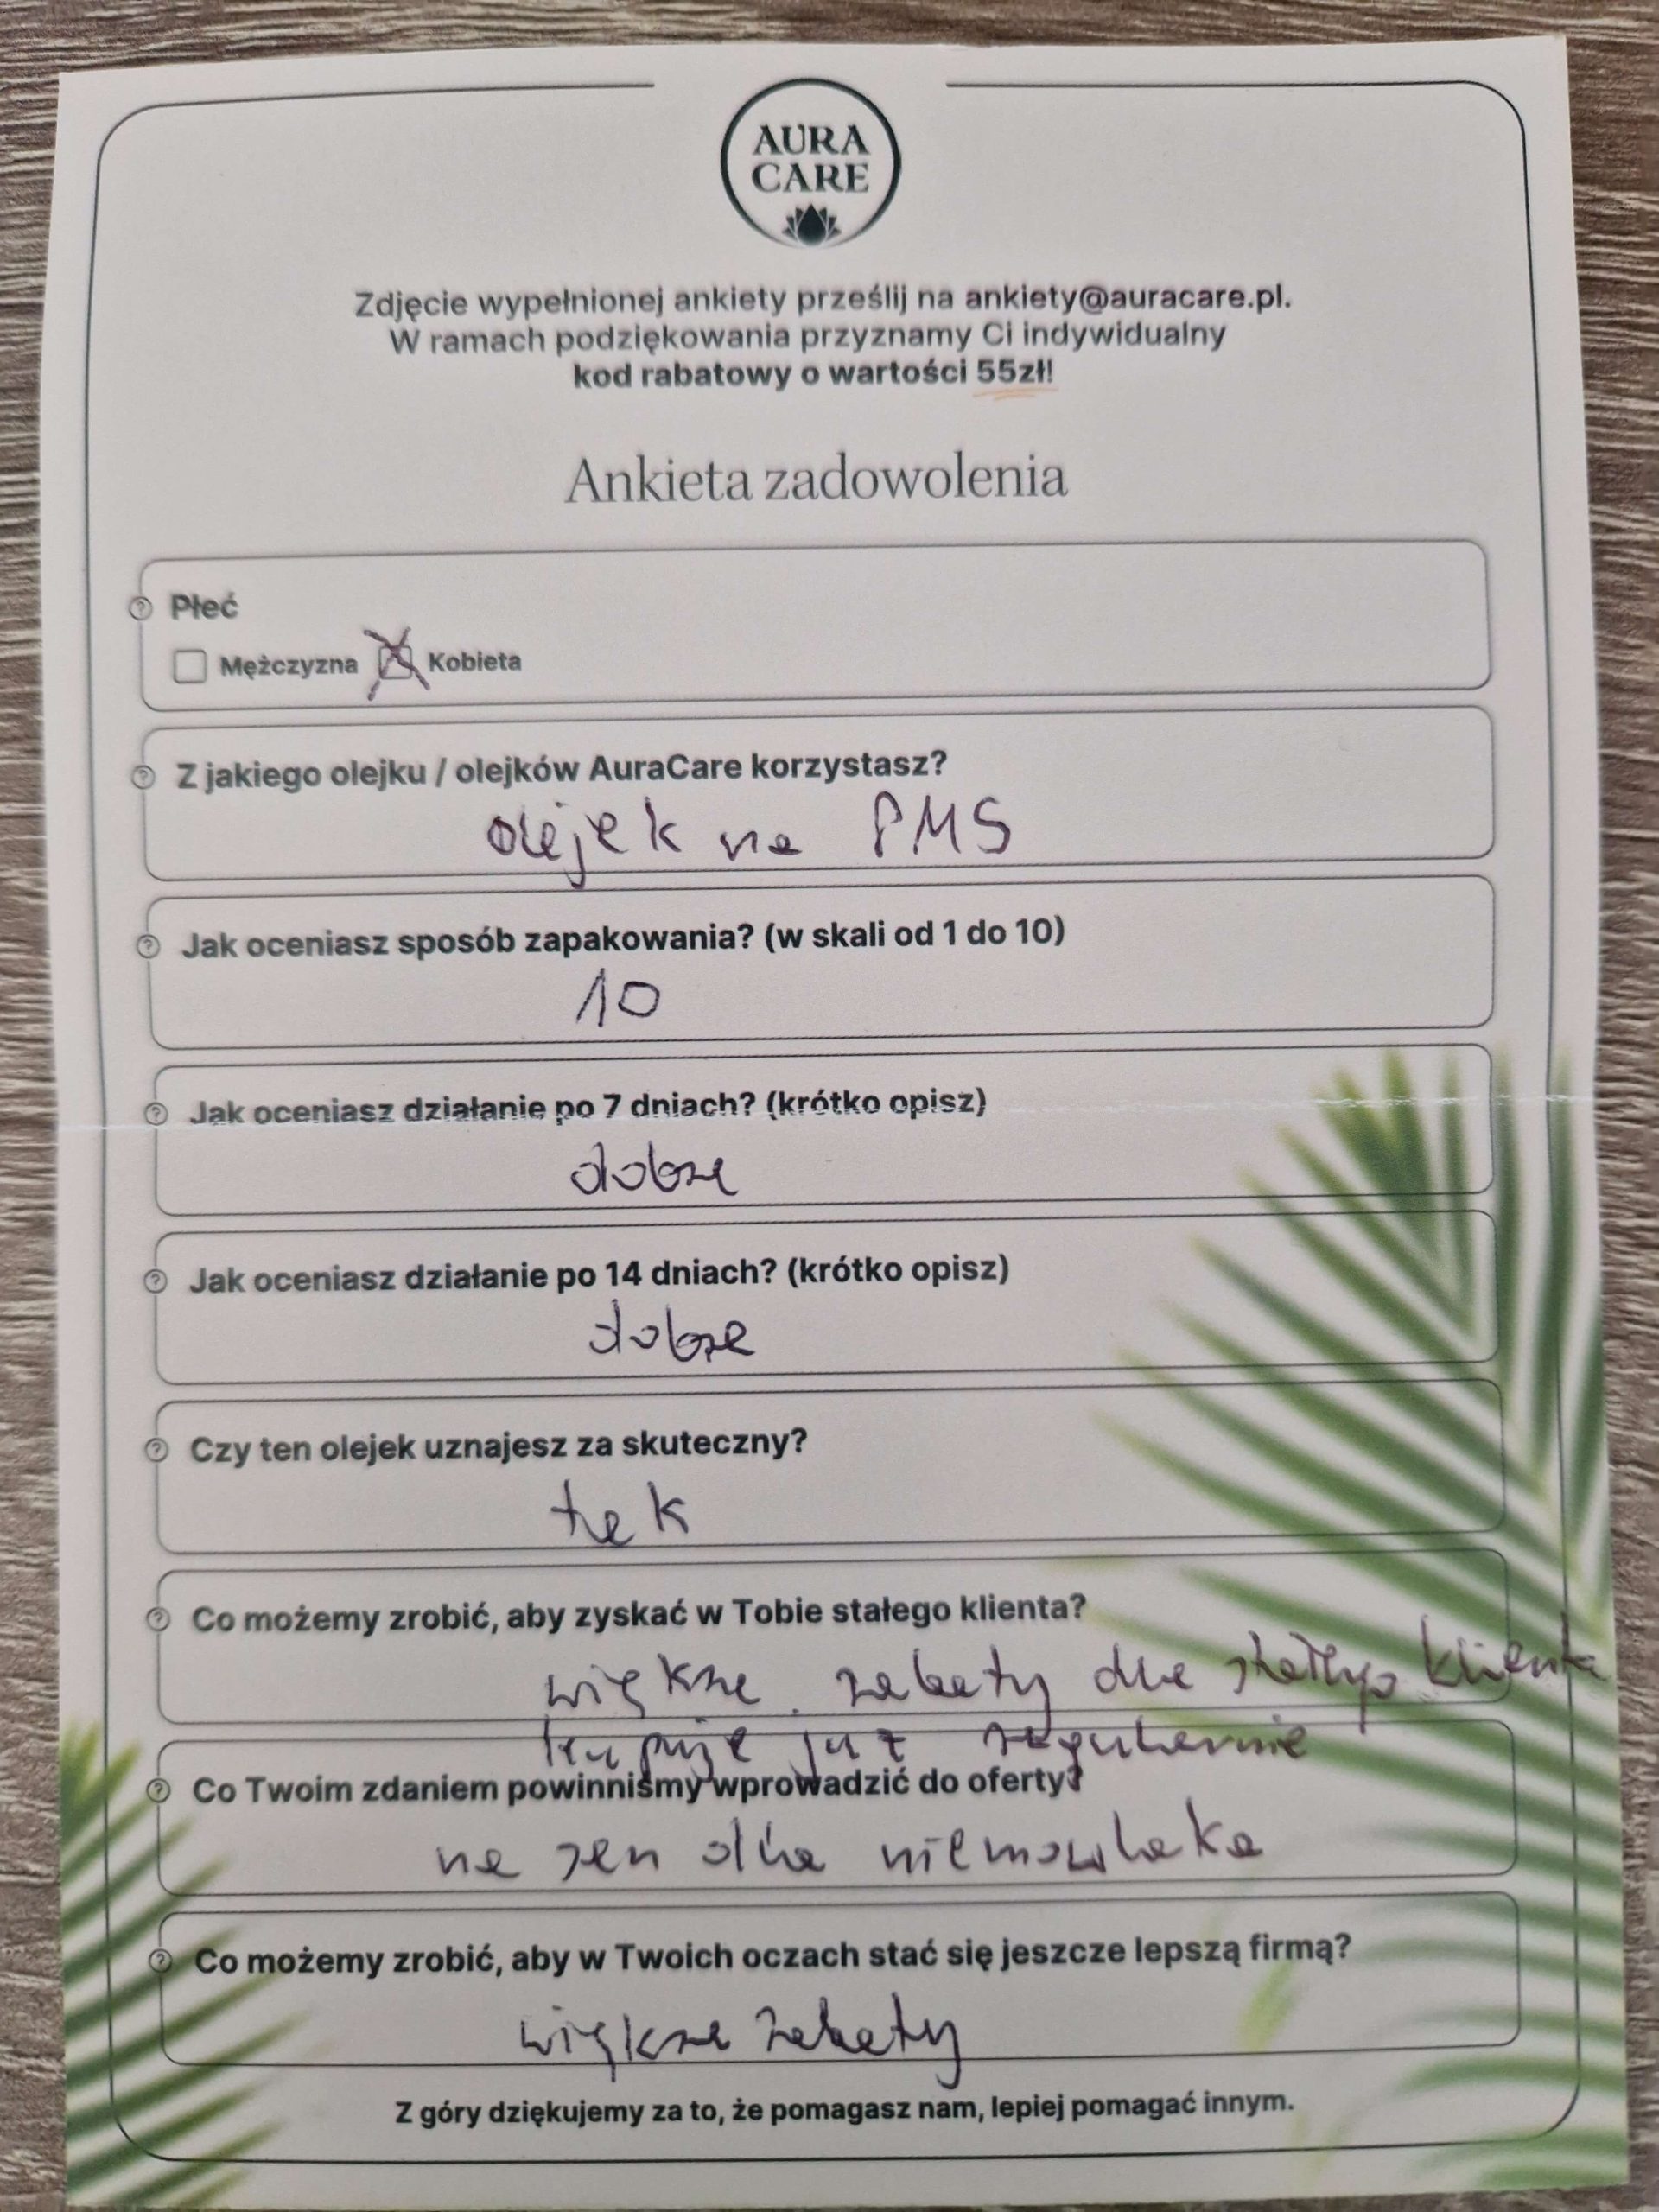 AURA
CARE
Zdjęcie wypełnionej ankiety prześlij na ankiety@auracare.pl.
W ramach podziękowania przyznamy Ci indywidualny
kod rabatowy o wartości 55zł!
Ankieta zadowolenia
Płeć
Mężczyzna Kobieta
Z jakiego olejku / olejków AuraCare korzystasz?
olejek na PMS
Jak oceniasz sposób zapakowania? (w skali od 1 do 10)
10
Jak oceniasz działanie po 7 dniach? (krótko opisz)
dobrze
Jak oceniasz działanie po 14 dniach? (krótko opisz)
dobrze
Czy ten olejek uznajesz za skuteczny?
tak
Co możemy zrobić, aby zyskać w Tobie stałego klienta?
większe rabaty dla stałego klienta
kupuje już regularnie
Co Twoim zdaniem powinniśmy wprowadzić do oferty?
na sen dla niemowlaka
Co możemy zrobić, aby w Twoich oczach stać się jeszcze lepszą firmą?
większe rabaty
Z góry dziękujemy za to, że pomagasz nam, lepiej pomagać innym.